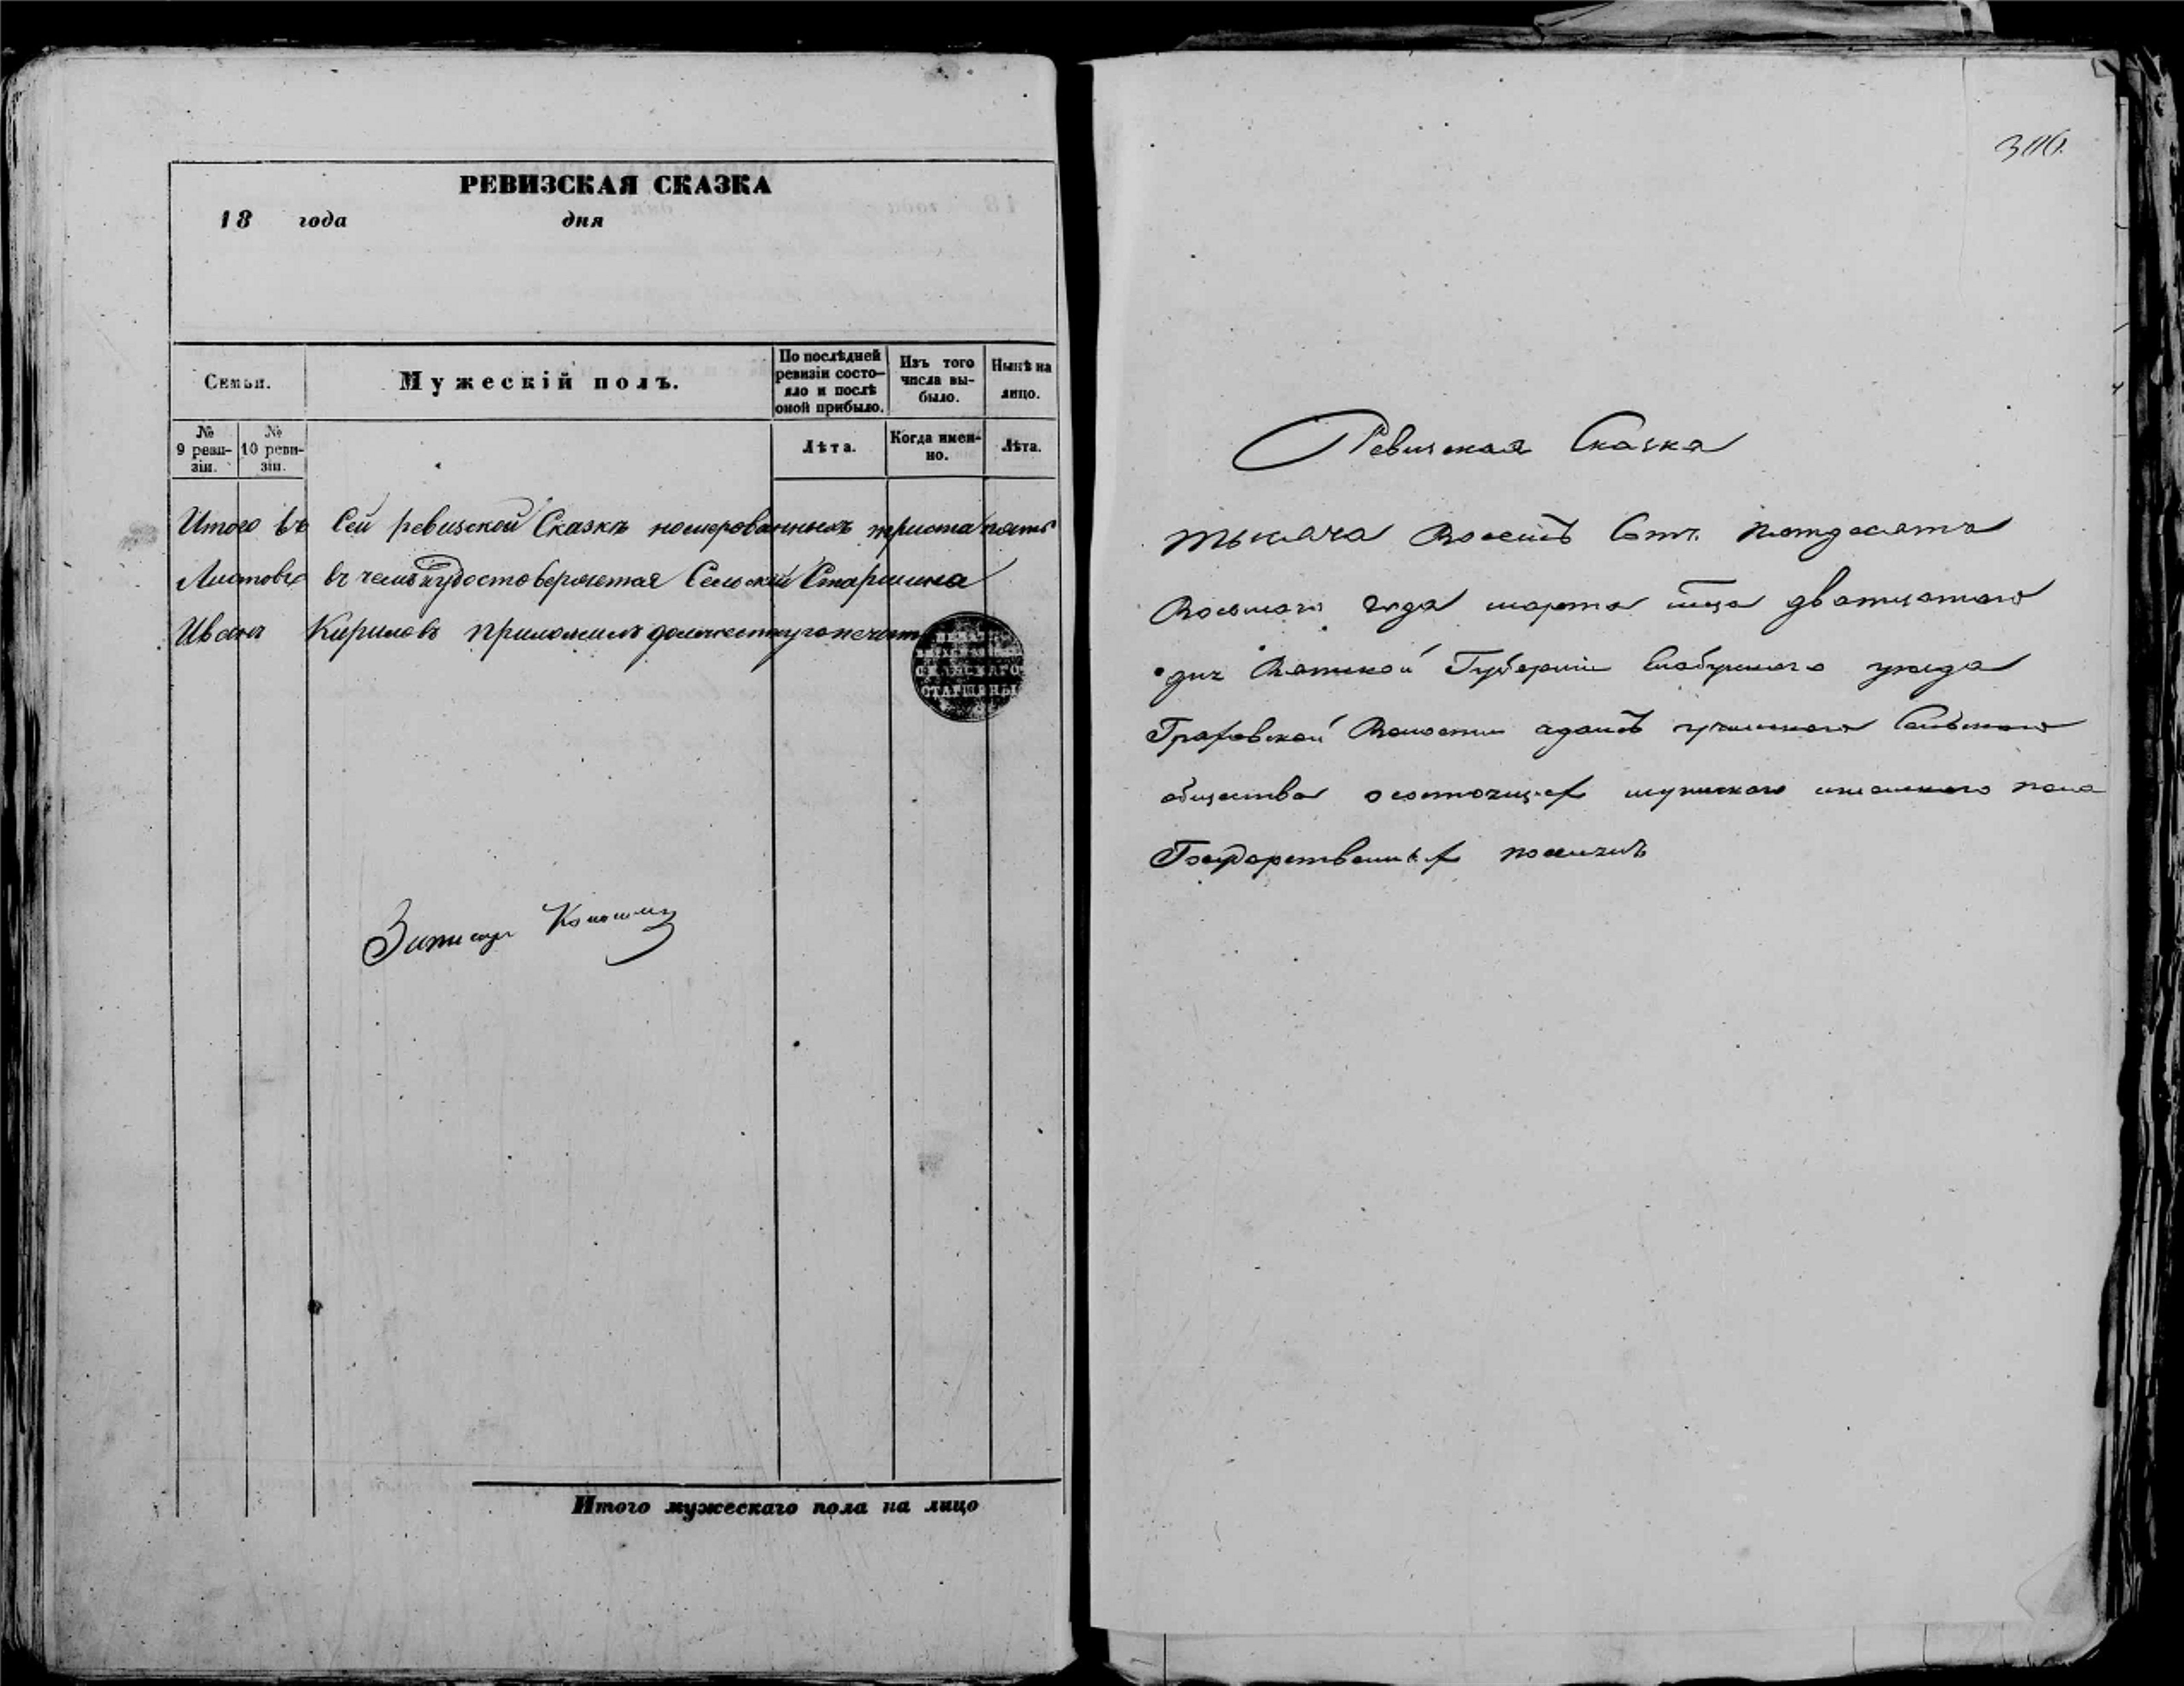 РЕВИЗСКАЯ СКАЗКА
18 года дня
Семьи.
Мужескій полъ.
По послѣдней ревизіи состо-
яло и послѣ оной прибыло.
Изъ того числа вы-
было.
Нынѣ на лицо.
№ 9 реви-
зіи.
№ 10 реви-
зіи.
Лѣта.
Когда имен-
но.
Лѣта.
Итого въ Сей ревизской Сказкѣ номерованныхъ триста пять
Листовъ въ чемъ удостоверяетъ Сельскій Старшина
Иванъ Кириловъ приложилъ должностную печать
СТАРШИНЫ
Итого мужескаго пола на лицо
306.
Ревизская Сказка
тысяча Восемь Сотъ пятдесятъ
Восьмаго года марта дватцатаго
дня Вятской Губерніи Елабужскаго уезда
Граховской Волости Сельскаго
общества о состоящих мужскаго и женскаго пола
Государственных